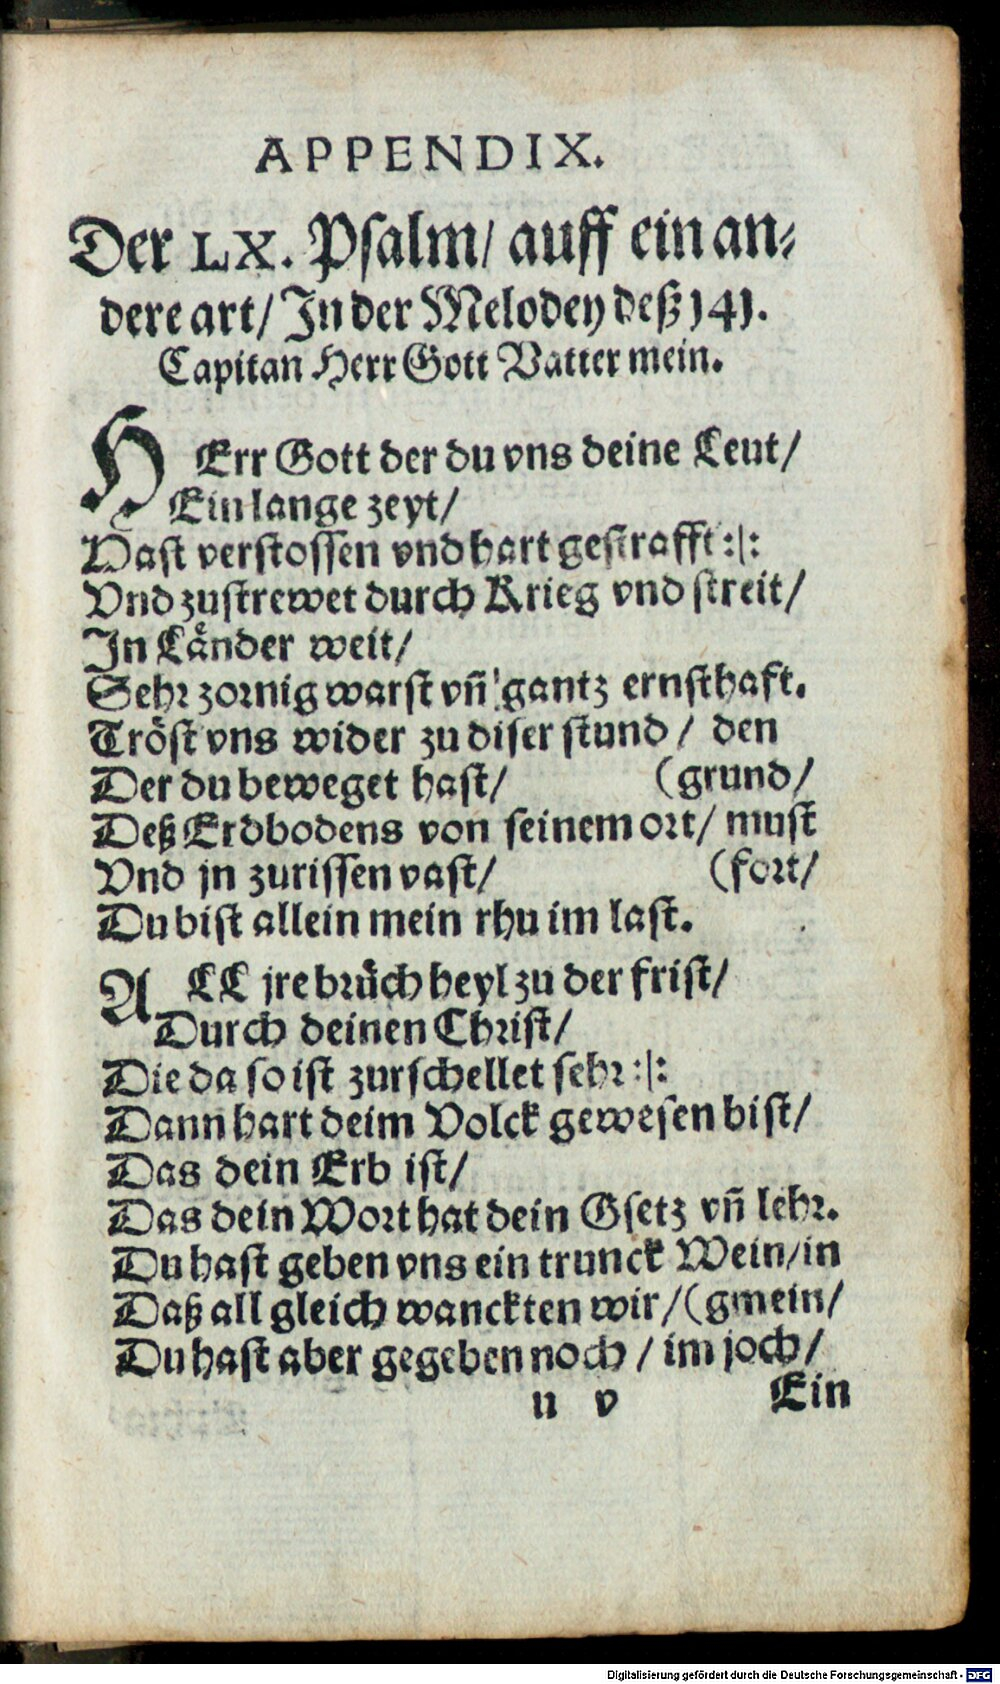 APPENDIX.
Der LX. Psalm/ auff ein an⸗
dere art/ In der Melodey deß 141.
Capitan Herr Gott Vatter mein.
HErr Gott der du vns deine Leut/
Ein lange zeyt/
Vast verstossen vnd hart gestrafft :|:
Vnd zustrewet durch Krieg vnd streit/
In Laͤnder weit/
Sehr zornig warst vñ gantz ernsthaft.
Troͤst vns wider zu diser stund / den
Der du beweget hast/ (grund/
Deß Erdbodens von seinem ort/ must
Vnd jn zurissen vast/ (fort/
Du bist allein mein rhu im last.
ALL jre bruͤch heyl zu der frist/
Durch deinen Christ/
Die da so ist zurschellet sehr :|:
Dann hart deim Volck gewesen bist/
Das dein Erb ist/
Das dein Wort hat dein Gsetz vñ lehr.
Du hast geben vns ein trunck Wein/in
Daß all gleich wanckten wir/(gmein/
Du hast aber gegeben noch / im joch/
u v Ein
Digitalisierung gefördert durch die Deutsche Forschungsgemeinschaft - DFG